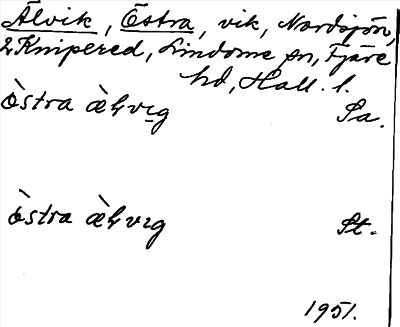 Älvik, Östra, vik, Nordsjön,
2 Knipered, Lindome sn, Fjäre
hd, Hall. l.
östra ælvɩg Pa.
östra ælvɩg St.
1951.